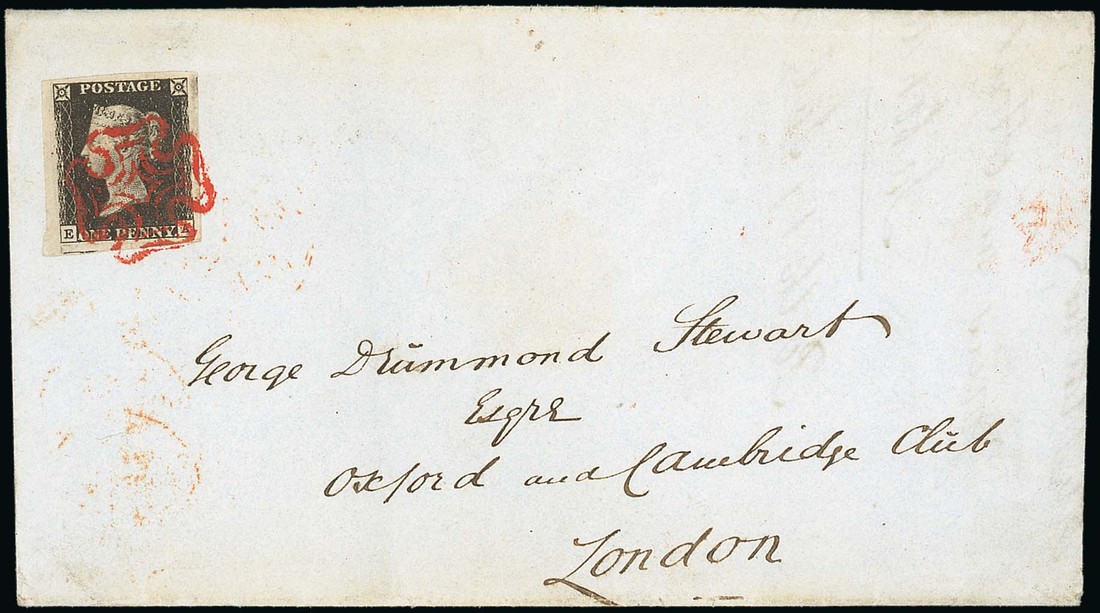 POSTAGE
E ONE PENNY A
George Drummond Stewart
Esqre
Oxford and Cambridge Club
London